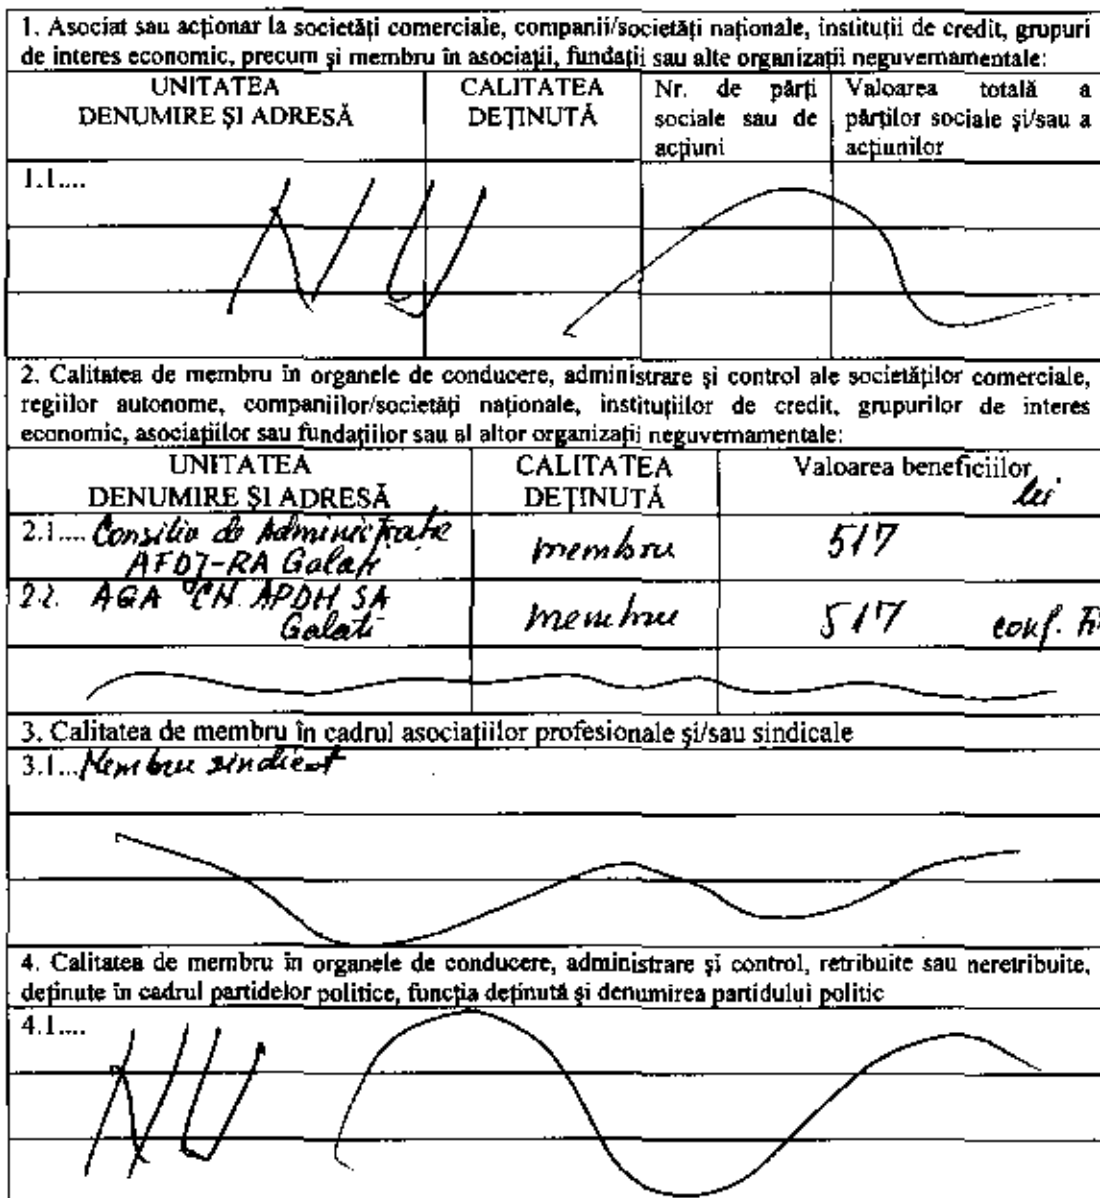 1. Asociat sau acționar la societăți comerciale, companii/societăți naționale, instituții de credit, grupuri
de interes economic, precum și membru în asociații, fundații sau alte organizații neguvernamentale:
UNITATEA
DENUMIRE ȘI ADRESĂ
CALITATEA
DEȚINUTĂ
Nr. de părți
sociale sau de
acțiuni
Valoarea totală a
părților sociale și/sau a
acțiunilor
1.1....
NU
2. Calitatea de membru în organele de conducere, administrare și control ale societăților comerciale,
regiilor autonome, companiilor/societăți naționale, instituțiilor de credit, grupurilor de interes
economic, asociațiilor sau fundațiilor sau al altor organizații neguvernamentale:
UNITATEA
DENUMIRE ȘI ADRESĂ
CALITATEA
DEȚINUTĂ
Valoarea beneficiilor
lei
2.1.... Consiliu de Administratie
AFDJ-RA Galati
membru
517
2.2. AGA CN. APDM SA
Galati
membru
517 conf.
3. Calitatea de membru în cadrul asociațiilor profesionale și/sau sindicale
3.1... Membru sindicat
4. Calitatea de membru în organele de conducere, administrare și control, retribuite sau neretribuite,
deținute în cadrul partidelor politice, funcția deținută și denumirea partidului politic
4.1....
NU